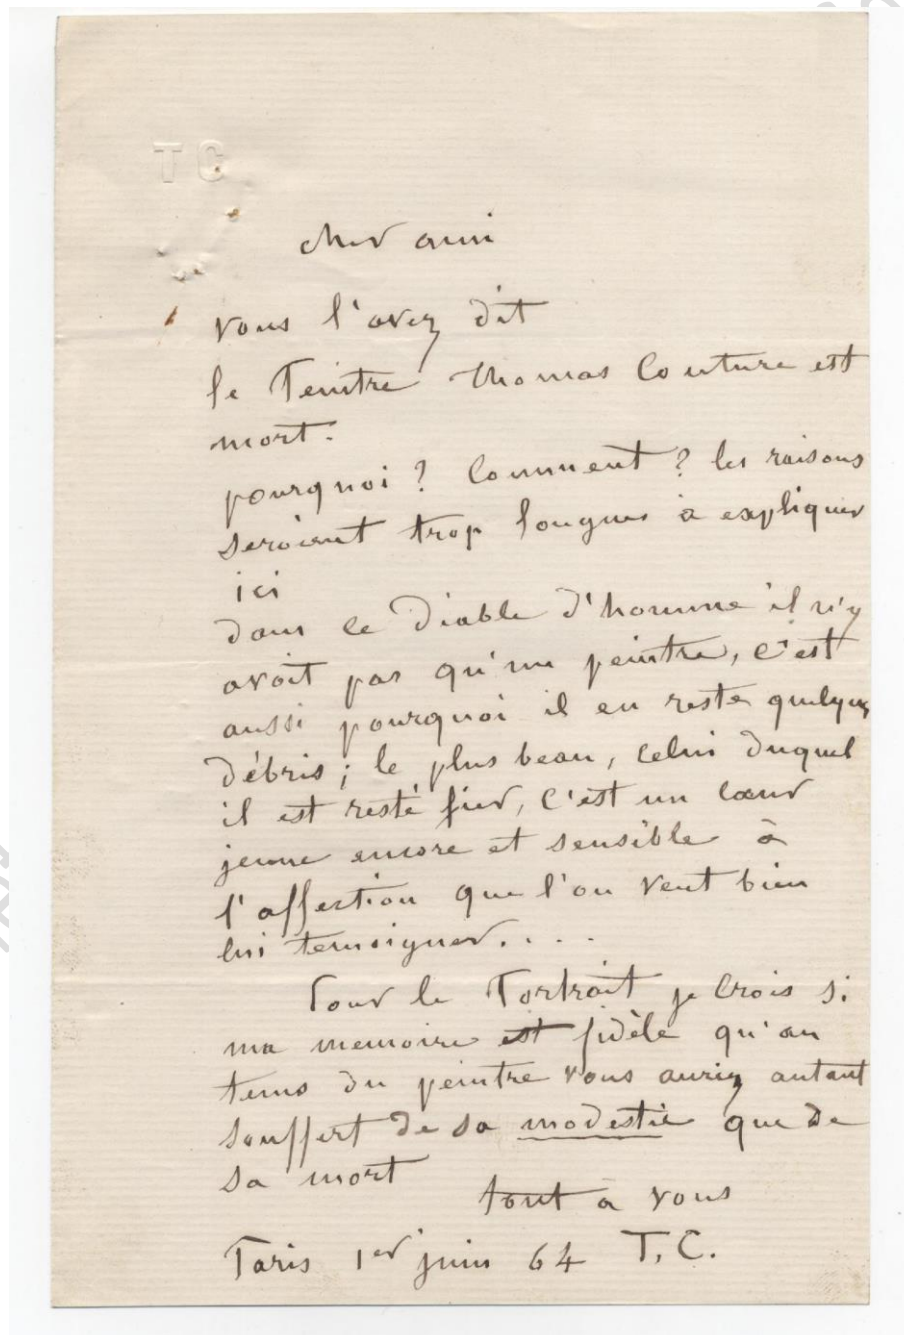 TC
cher ami
vous l'avez dit
le Peintre Thomas Couture est
mort.
pourquoi ? Comment ? les raisons
seroient trop longues à expliquer
ici
dans ce diable d'homme il n'y
avoit pas qu'un peintre, c'est
aussi pourquoi il en reste quelques
débris ; le plus beau, celui duquel
il est resté fier, c'est un cœur
jeune encore et sensible à
l'affection que l'on veut bien
lui temoigner....
Pour le Portrait je crois si
ma memoire est fidèle qu'au
tems du peintre vous auriez autant
souffert de sa modestie que de
sa mort
tout à vous
Paris 1er juin 64 T.C.